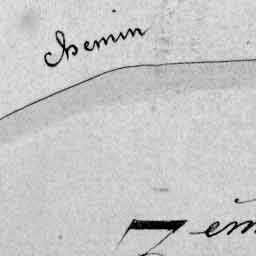 Chemin
7 em